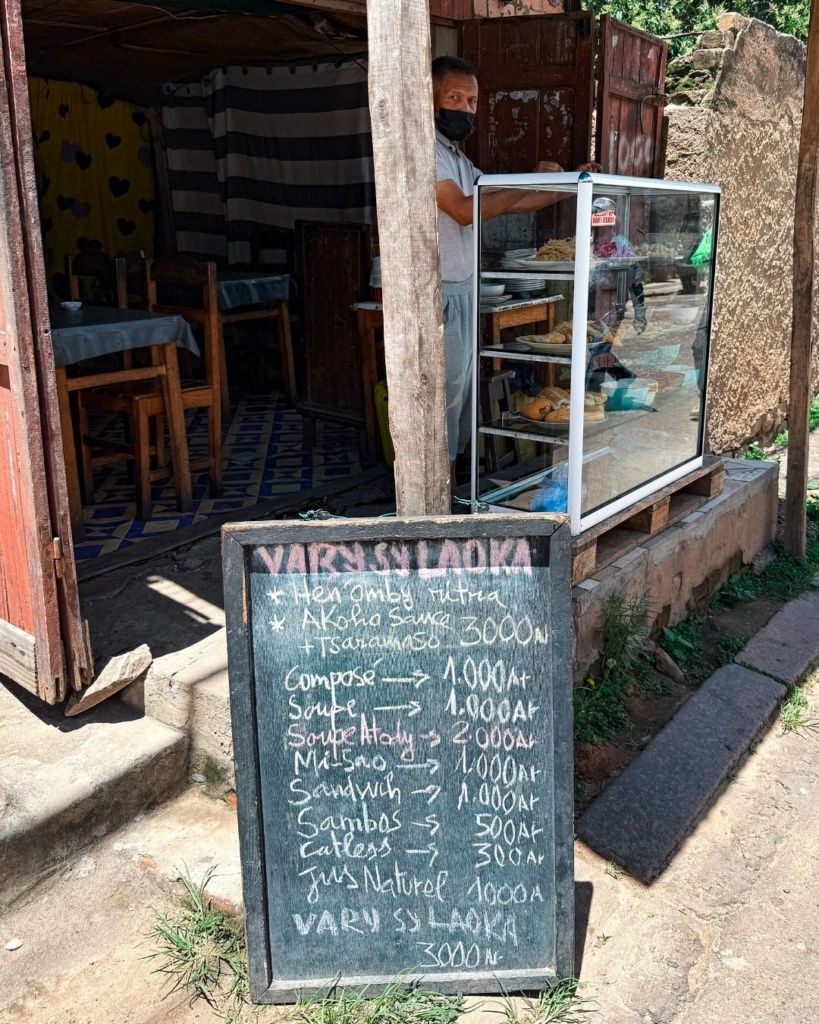 VARY SY LAOKA
* Hen'omby ritra
* AKoho Sauce
+ Tsaramaso 3000Ar
Composé → 1.000Ar
Soupe → 1.000Ar
Soupe Atody → 2.000Ar
Mi-Sao → 1.000Ar
Sandwich → 1.000Ar
Sambos → 500Ar
Catless → 300Ar
Jus Naturel 1000A
VARY SY LAOKA
3000Ar